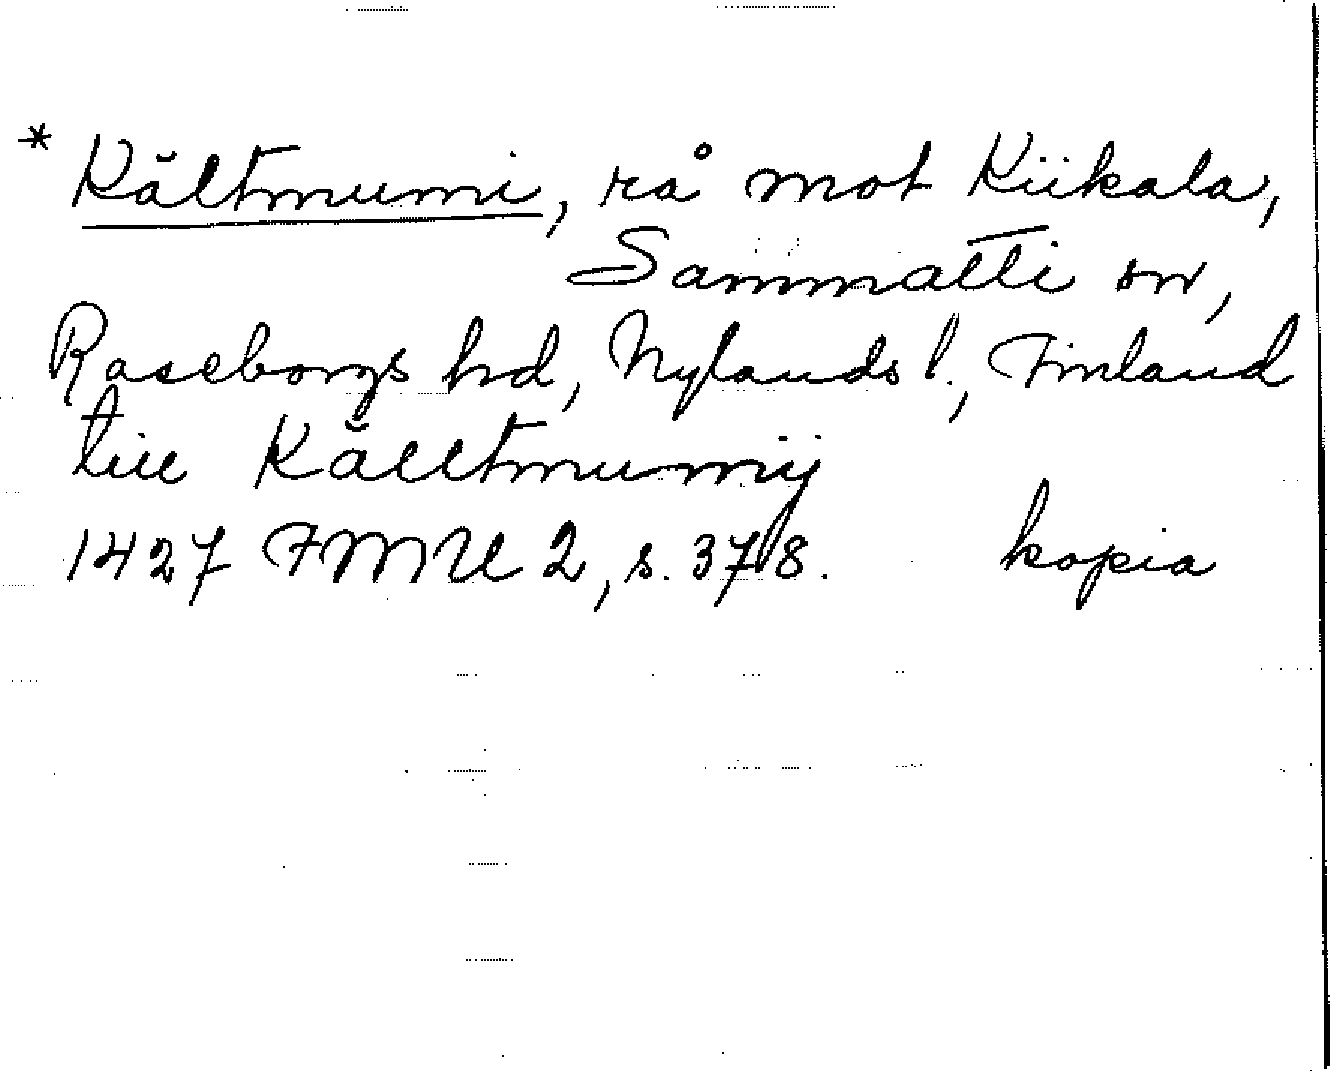 * Kältmumi, rå mot Kiikala,
Sammatti sn,
Raseborgs hd, Nylands l., Finland
till Källtmumÿ
1427 FMU 2, s. 378. kopia